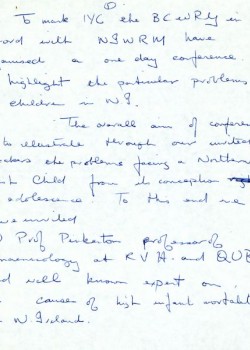 ①
To mark IYC the BCWRLg in
ord with NIWRM have
anised a one day conference
highlight the particular problems
children in N.I.
The overall aim of conferen
to illustrate through our invited
kers the problems facing a Northern
sh Child from its conception
adolescence. To this end we
ve invited
Prof Pinkerton professor of
naecology at R.V.H. and QUB
d well known expert on
causes of high infant mortality
N Ireland.